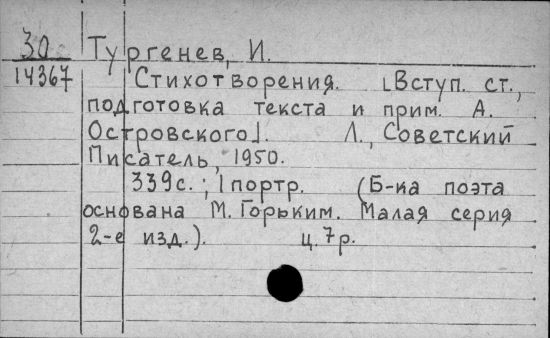 30 Тургенев, И.
14367 Стихотворения. [Вступ. ст.,
подготовка текста и прим. А.
Островского]. Л., Советский
Писатель, 1950.
339с.; 1 портр. (Б-ка поэта
основана М. Горьким. Малая серия
2-е изд.). ц. 7р.